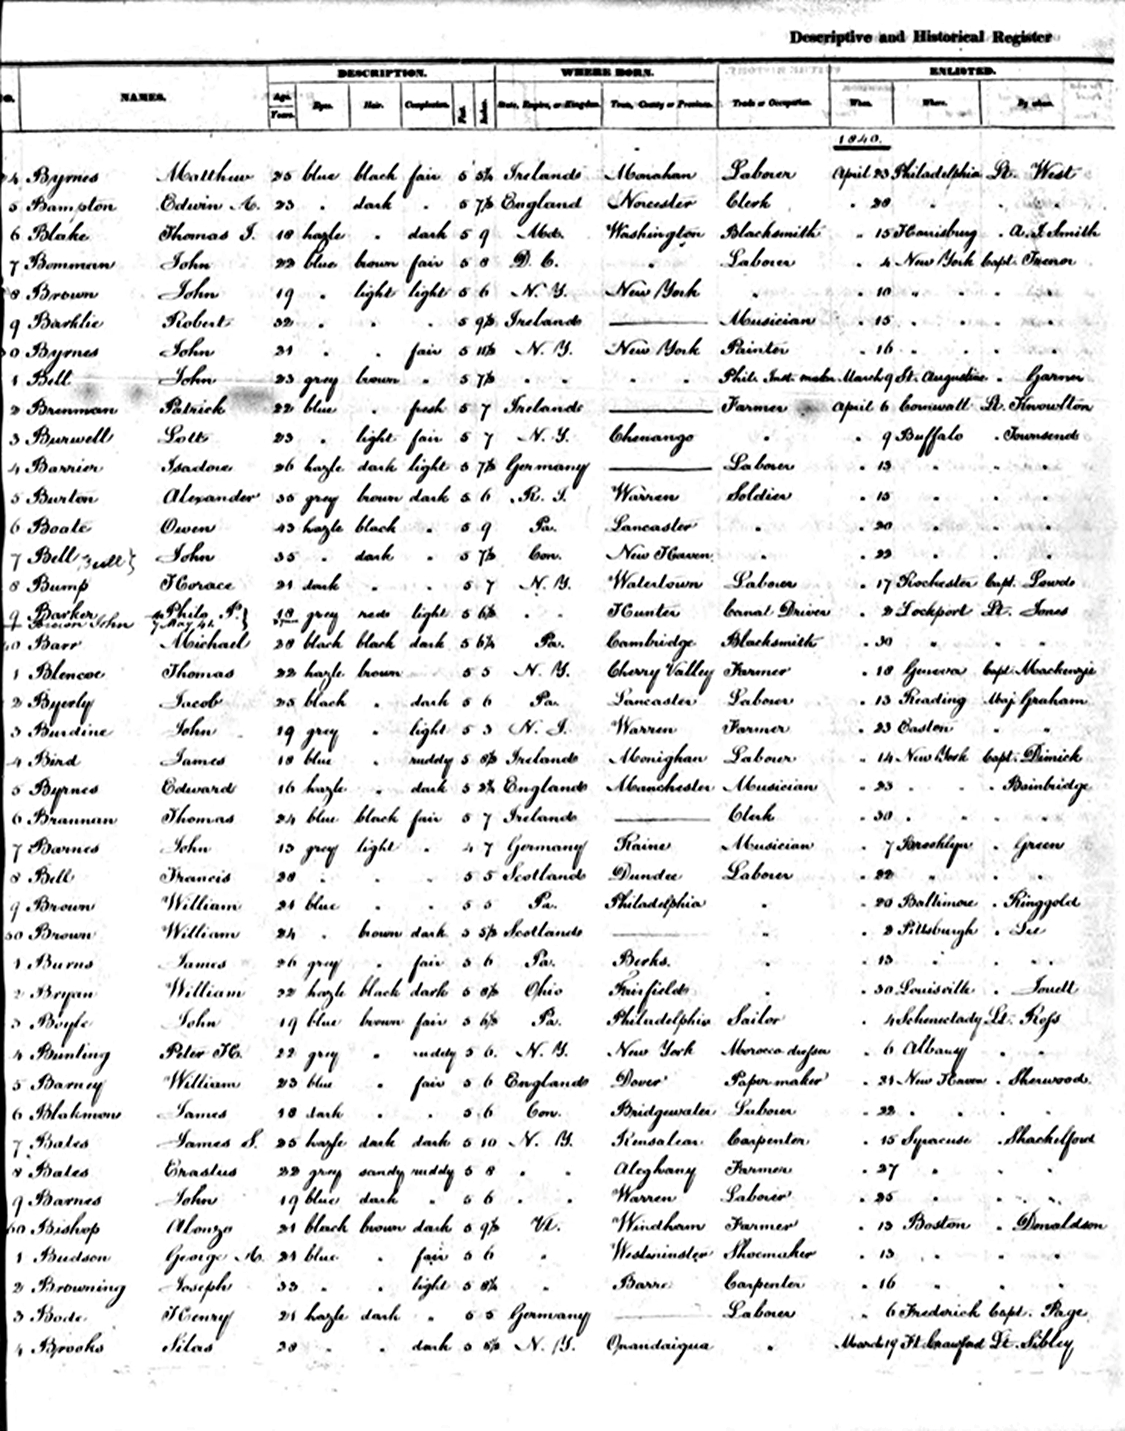 Descriptive and Historical Register
DESCRIPTION. WHERE BORN. ENLISTED.
NO. NAMES. Age. Years. Eyes. Hair. Complexion. Feet. Inches. State, Empire, or Kingdom. Town, County or Province. Trade or Occupation. When. Where. By whom.
1840.
4 Byrnes Matthew 25 blue black fair 5 5¼ Ireland Monahan Laborer April 23 Philadelphia Lt. West
5 Bampton Edwin A. 23 " dark " 5 7½ England Worcester Clerk " 28 " " "
6 Blake Thomas J. 18 hazle " dark 5 9 Md. Washington Blacksmith " 15 Harrisburg " A. J. Smith
7 Bowman John 22 blue brown fair 5 8 D. C. " Laborer " 4 New York Capt. Trenor
8 Brown John 19 " light light 5 6 N. Y. New York " " 10 " " " "
9 Barklie Robert 32 " " " 5 9½ Ireland — Musician " 15 " " " "
0 Byrnes John 21 " " fair 5 11½ N. Y. New York Painter " 16 " " " "
1 Bell John 23 grey brown " 5 7½ " " " " Phil. Inst. maker March 9 St. Augustine " Garner
2 Brennan Patrick 22 blue " fresh 5 7 Ireland — Farmer April 6 Cornwall Lt. Knowlton
3 Burwell Lott 23 " light fair 5 7 N. Y. Chenango " " 9 Buffalo " Townsend
4 Barrier Isadore 26 hazle dark light 5 7½ Germany — Laborer " 13 " " "
5 Burton Alexander 35 grey brown dark 5 6 R. I. Warren Soldier " 15 " " "
6 Boate Owen 43 hazle black " 5 9 Pa. Lancaster " " 20 " " "
7 Bell John 35 " dark " 5 7½ Con. New Haven " " 22 " " "
8 Bump Horace 21 dark " " 5 7 N. Y. Watertown Laborer " 17 Rochester Capt. Lowd
9 Barker Philo P. 18 grey red light 5 6½ " " Hunter Canal Driver " 2 Lockport Lt. Jones
Brown John
40 Barr Michael 28 black black dark 5 6¼ Pa. Cambridge Blacksmith " 30 " " "
1 Blencoe Thomas 22 hazle brown 5 5 N. Y. Cherry Valley Farmer " 18 Geneva Capt. Mackenzie
2 Byerly Jacob 25 black " dark 5 6 Pa. Lancaster Laborer " 13 Reading Maj. Graham
3 Burdine John 19 grey " light 5 3 N. J. Warren Farmer " 23 Easton " "
4 Bird James 18 blue " ruddy 5 8½ Ireland Monighan Laborer " 14 New York Capt. Dimick
5 Byrnes Edward 16 hazle " dark 5 2¾ England Manchester Musician " 23 " " " Bainbridge
6 Brannan Thomas 24 blue black fair 5 7 Ireland — Clerk " 30 " " " "
7 Barnes John 13 grey light " 4 7 Germany Raine Musician " 7 Brooklyn " Green
8 Bell Francis 28 " " " 5 5 Scotland Dundee Laborer " 22 " " "
9 Brown William 21 blue " " 5 5 Pa. Philadelphia " " 20 Baltimore " Ringgold
50 Brown William 24 " brown dark 5 5½ Scotland — " " 2 Pittsburgh " Lee
1 Burns James 26 grey " fair 5 6 Pa. Berks. " " 13 " " "
2 Bryan William 32 hazle black dark 5 8½ Ohio Fairfield " " 30 Louisville " Jouett
3 Boyle John 19 blue brown fair 5 6½ Pa. Philadelphia Sailor " 4 Schenectady Lt. Ross
4 Bunting Peter H. 22 grey " ruddy 5 6. N. Y. New York Morocco dresser " 6 Albany " "
5 Barney William 23 blue " fair 5 6 England Dover Paper maker " 21 New Haven " Sherwood
6 Blakmon James 18 dark " " 5 6 Con. Bridgewater Laborer " 22 " " "
7 Bates James S. 25 hazle dark dark 5 10 N. Y. Rensalear Carpenter " 15 Syracuse " Shackelford
8 Bates Erastus 22 grey sandy ruddy 5 8 " " Aleghany Farmer " 27 " " "
9 Barnes John 19 blue dark " 5 6 " " Warren Laborer " 25 " " "
60 Bishop Alonzo 21 black brown dark 5 9½ Vt. Windham Farmer " 13 Boston " Donaldson
1 Budson George M. 21 blue " fair 5 6 " Westminster Shoemaker " 13 " " "
2 Browning Joseph 33 " " light 5 8¼ " Barre Carpenter " 16 " " "
3 Bode Henry 21 hazle dark " 5 5 Germany — Laborer " 6 Frederick Capt. Page
4 Brooks Silas 28 " " dark 5 8½ N. Y. Onandaigua " March 19 Ft. Crawford Lt. Sibley